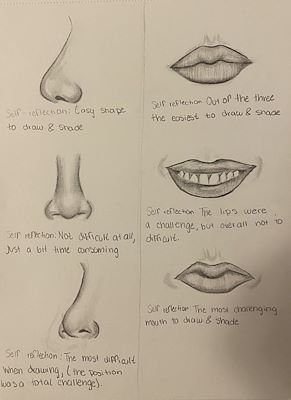 Self-reflection: Easy shape
to draw & shade
Self reflection: Not difficult at all,
Just a bit time consoming
Self reflection: The most difficult
when drawing, (the position
was a total challenge).
Self reflection: Out of the three
the easiest to draw & shade
Self reflection: The lips were
a challenge, but overall not to
difficult.
Self reflection: The most challenging
mouth to draw & shade